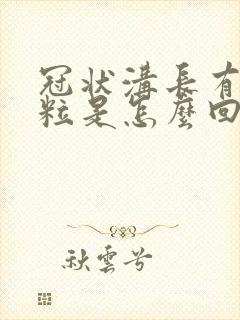 冠狀溝長有
粒是怎麼回
秋雲兮